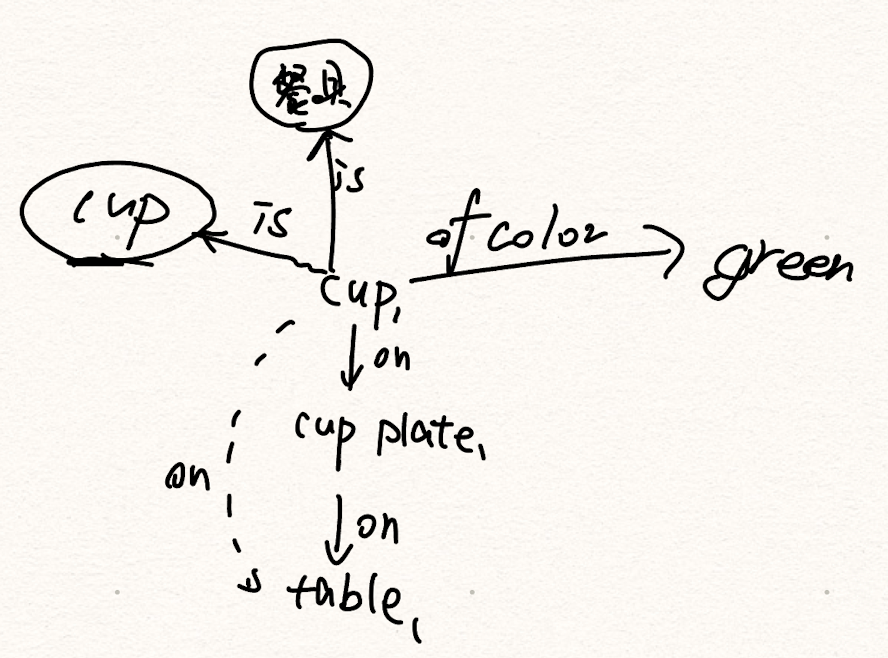 餐具
is
cup
is
of color
green
cup₁
on
cup plate₁
on
on
table₁